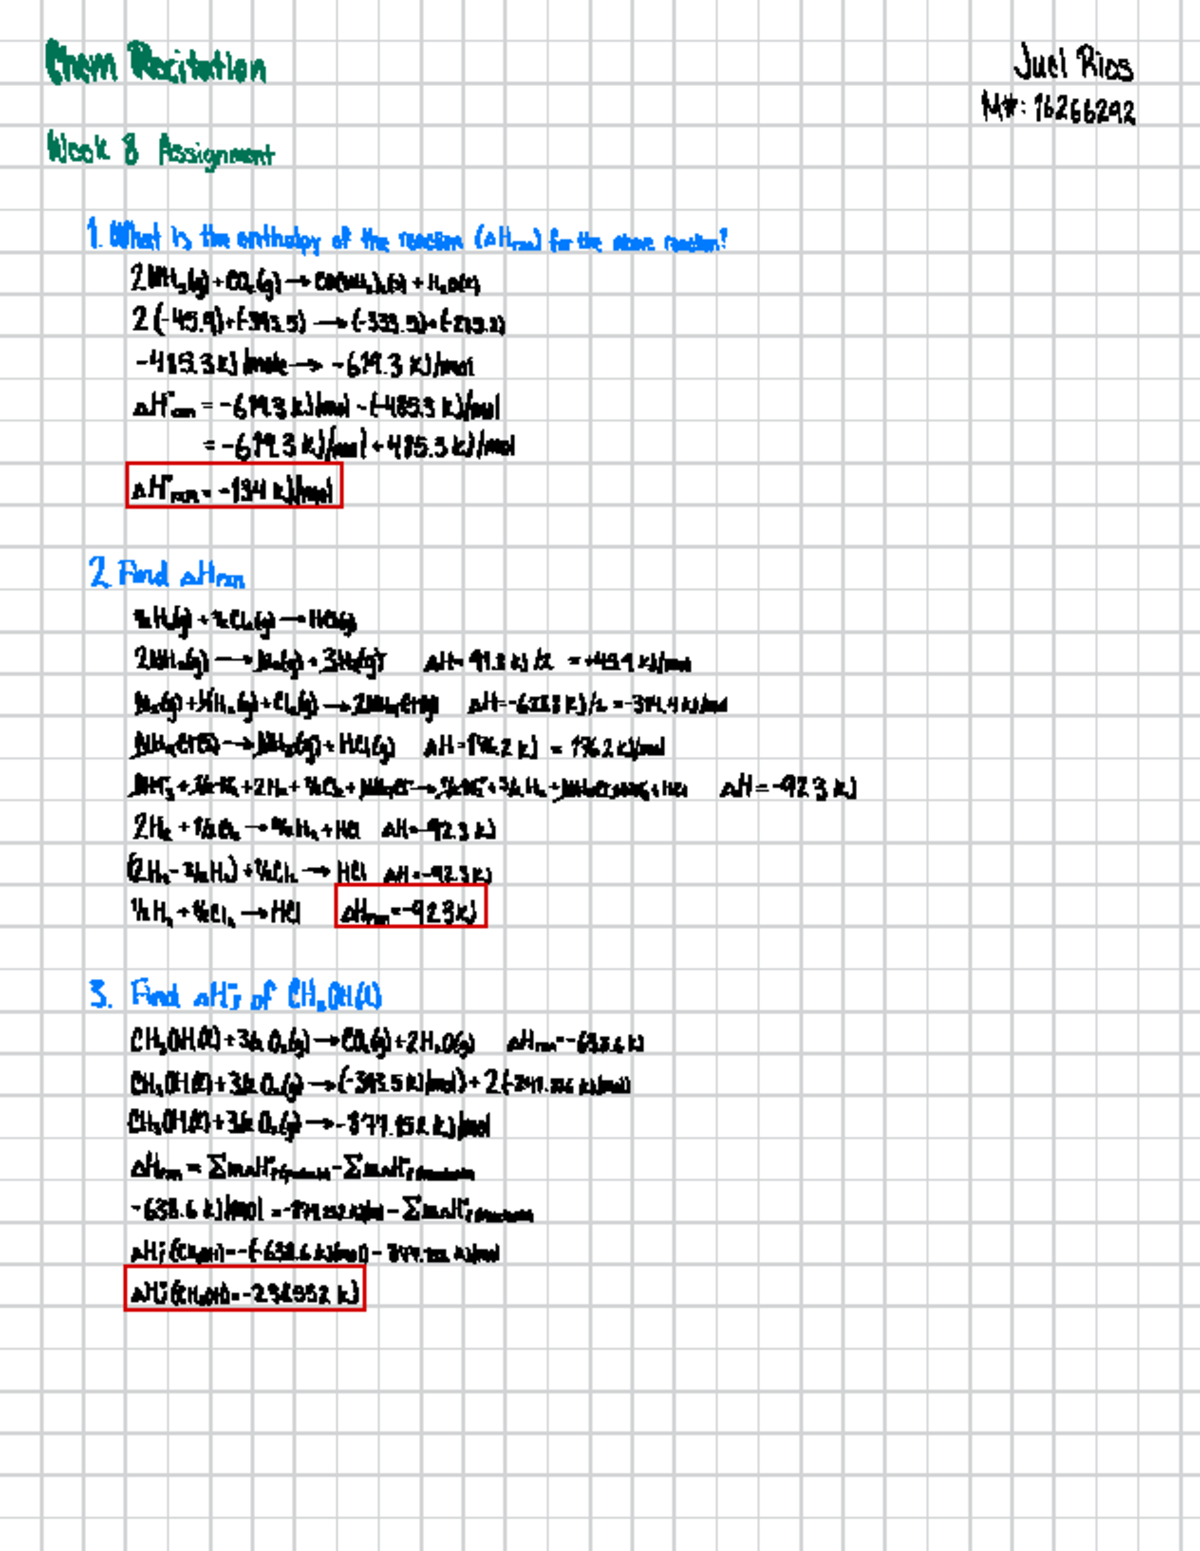 Chem Recitation
Juel Rios
M#: 16266292
Week 8 Assignment
1. What is the enthalpy of the reaction (ΔHrxn) for the above reaction?
2NH₃(g) + CO₂(g) → CO(NH₂)₂(s) + H₂O(l)
2(-45.9)+(-393.5) → (-333.5)+(-285.8)
-485.3 kJ/mole → -619.3 kJ/mol
ΔH°rxn = -619.3 kJ/mol - (-485.3 kJ/mol)
= -619.3 kJ/mol + 485.3 kJ/mol
ΔH°rxn = -134 kJ/mol
2. Find ΔHrxn
½H₂(g) + ½Cl₂(g) → HCl(g)
2NH₃(g) → N₂(g) + 3H₂(g) ΔH= 91.8 kJ /2 = +45.9 kJ/mol
N₂(g) + 4H₂(g) + Cl₂(g) → 2NH₄Cl(s) ΔH=-628.8 kJ/2 = -314.4 kJ/mol
NH₄Cl(s) → NH₃(g) + HCl(g) ΔH=176.2 kJ = 176.2 kJ/mol
ΔH=-92.3 kJ
2H₂ + ½Cl₂ → 3/2H₂ + HCl ΔH=-92.3 kJ
(2H₂ - 3/2H₂) + ½Cl₂ → HCl ΔH=-92.3 kJ
½H₂ + ½Cl₂ → HCl ΔHrxn=-92.3 kJ
3. Find ΔH°f of CH₃OH(l)
CH₃OH(l) + 3/2 O₂(g) → CO₂(g) + 2H₂O(g) ΔHrxn=-638.6 kJ
CH₃OH(l) + 3/2 O₂(g) → (-393.5 kJ/mol) + 2(-241.826 kJ/mol)
CH₃OH(l) + 3/2 O₂(g) → -877.152 kJ/mol
ΔHrxn = ΣmΔH°f(products) - ΣmΔH°f(reactants)
-638.6 kJ/mol = -877.152 kJ/mol - ΣmΔH°f(reactants)
ΔH°f(CH₃OH)=-(-638.6 kJ/mol) - 877.152 kJ/mol
ΔH°f(CH₃OH)=-238.552 kJ